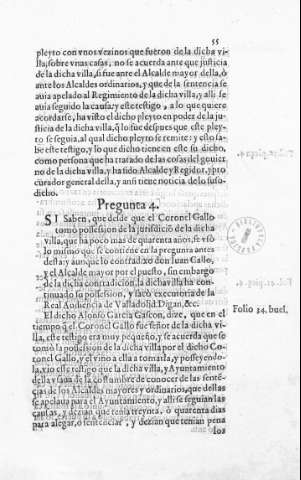 55
pleyto con vnos vezinos que fueron de la dicha vi-
lla, sobre vnas casas, no se acuerda ante que justicia
de la dicha villa, si fue ante el Alcalde mayor della, ò
ante los Alcaldes ordinarios, y que de la sentencia se
auia apelado al Regimiento de la dicha villa, y alli se
auia seguido la causa, y este testigo, a lo que quiere
acordarse, ha visto el dicho pleyto en poder de la ju-
sticia de la dicha villa, q̃ lo fue despues que este pley-
to se seguia, al qual dicho pleyto se remite: y esto sa-
be este testigo, y lo que dicho tiene en este su dicho,
como persona que ha tratado de las cosas del gouier-
no de la dicha villa, y ha sido Alcalde y Regidor, y pro
curador general della, y ansi tiene noticia de lo suso-
dicho.
Pregunta 4.
SI Saben, que desde que el Coronel Gallo
tomò possession de la jurisdició de la dicha
villa, que ha poco mas de quarenta años, se vsò
lo mismo que se contiene en la pregunta antes
desta: y aunque lo contradixo don Iuan Gallo,
y el Alcalde mayor por el puesto, sin embargo
de la dicha contradicion, la dicha villa ha con
tinuado su possession, y sacò executoria de la
Real Audiencia de Valladolid. Digan, &c.
El dicho Alonso Garcia Gascon, dize, que en el
tiempo q̃ el Coronel Gallo fue señor de la dicha vi-
lla, este testigo era muy pequeño, y se acuerda que se
tomò la possession de la dicha villa por el dicho Co-
ronel Gallo, y el vino a ella a tomarla, y posseyendo-
la, vio este testigo que la dicha villa, y Ayuntamiento
della vsaua de la costumbre de conocer de las senten-
cias de los Alcaldes mayores y ordinarios, que dellas
se apelaua para el Ayuntamiento, y alli se seguian las
causas, y dezian que tenia treynta, ò quarenta dias
para alegar, o sentenciar, y dezian que tenian pena
los
Folio 34. buel.